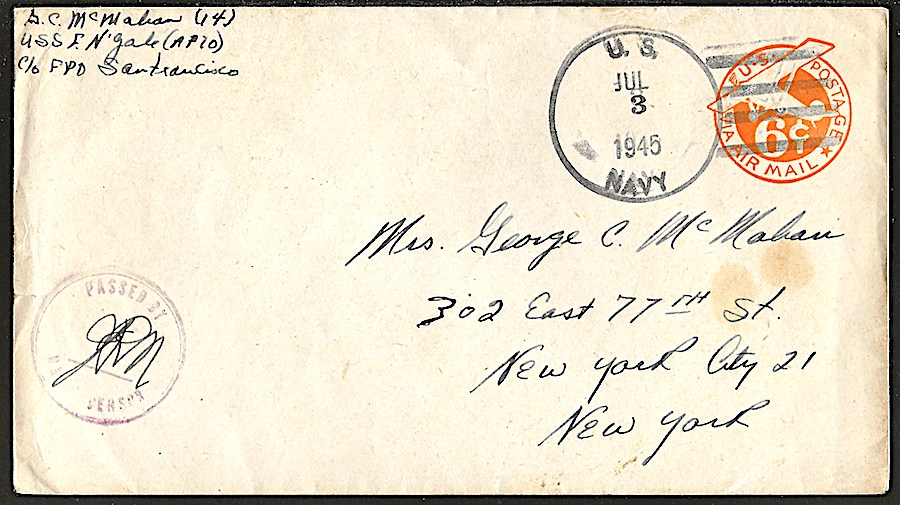 G. C. McMahan (14)
USS F. N'Gale (AP70)
c/o FPO San Francisco
U. S.
JUL
3
1945
NAVY
U.S. POSTAGE
6¢
VIA AIR MAIL
Mrs. George C. McMahan
302 East 77TH St.
New York City 21
New York
PASSED BY